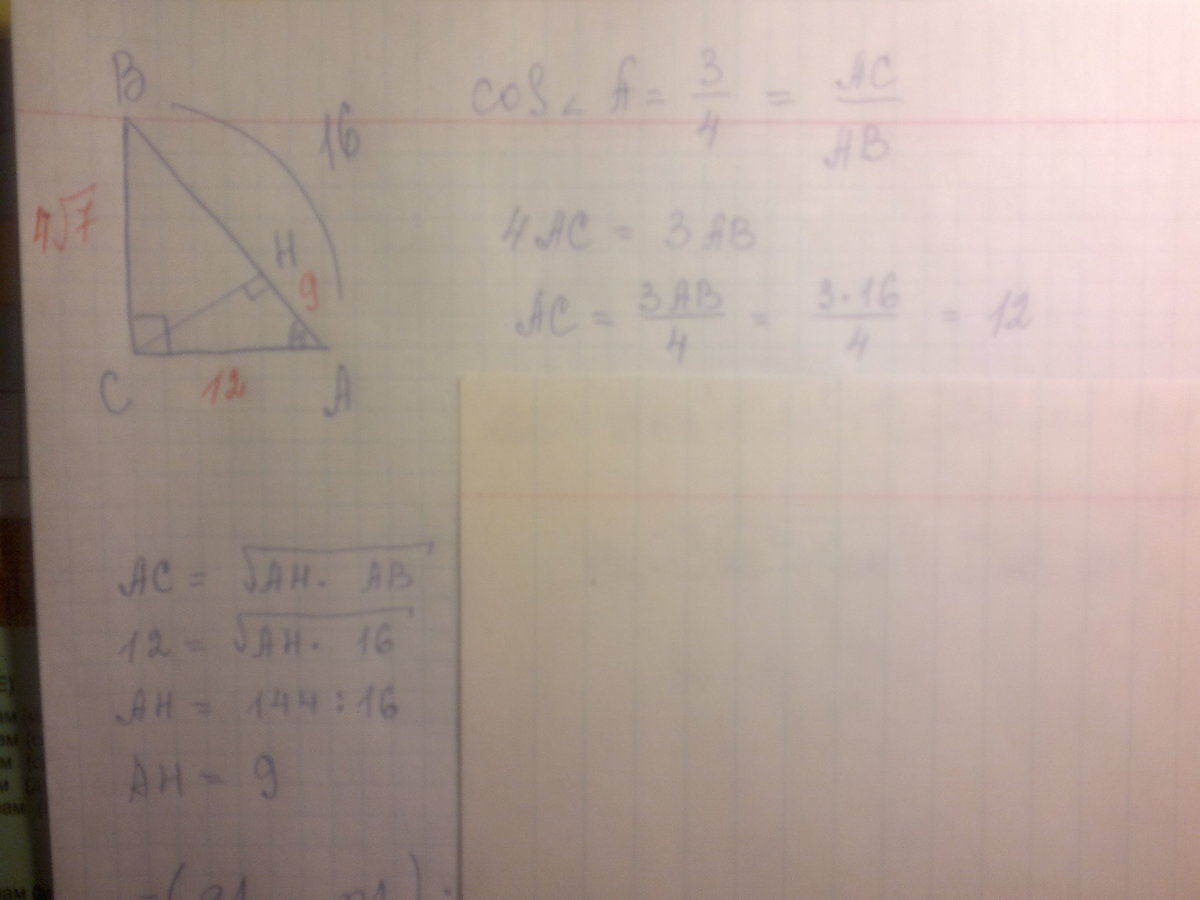 B
16
4√7
H
9
C
12
A
cos∠A = 3/4 = AC/AB
4AC = 3AB
AC = 3AB/4 = 3·16/4 = 12
AC = √AH· AB
12 = √AH· 16
AH = 144:16
AH = 9